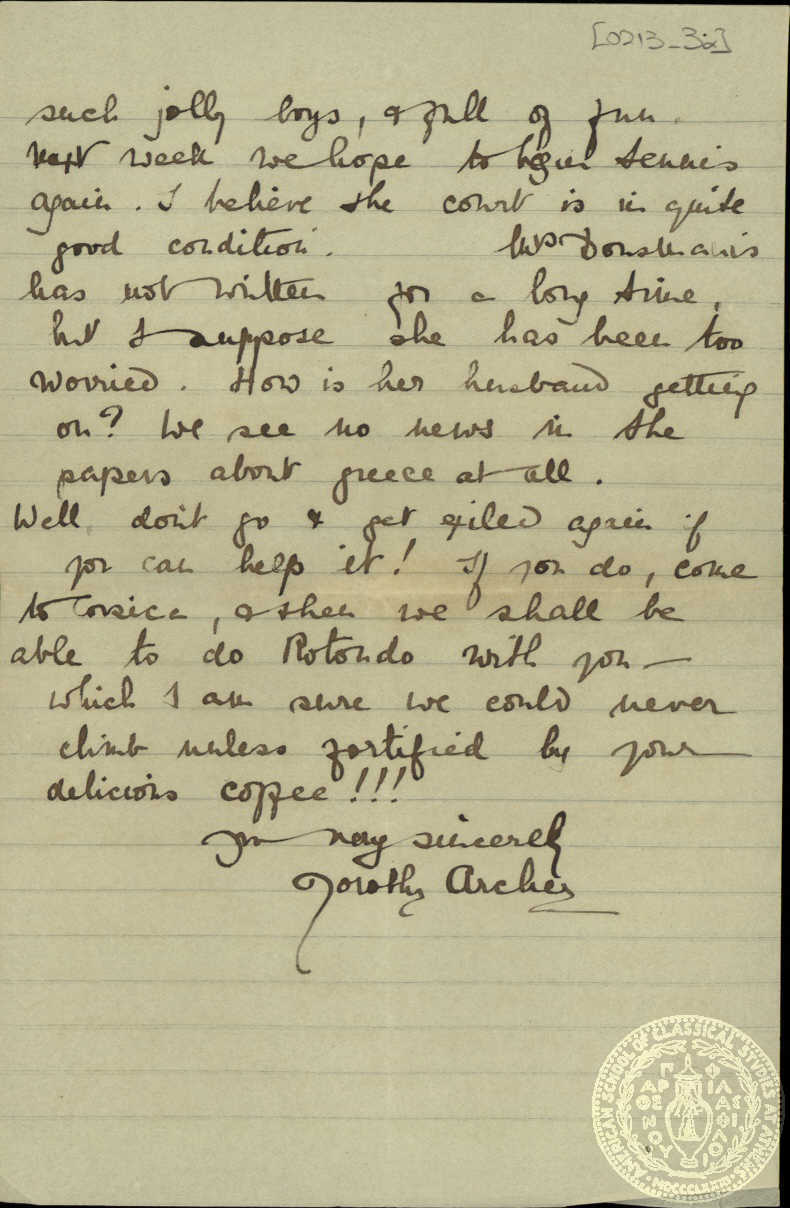 [0213_32]
such jolly boys, & full of fun.
Next week we hope to begin tennis
again. I believe the court is in quite
good condition. Mrs Dousmanis
has not written for a long time,
but I suppose she has been too
worried. How is her husband getting
on? We see no news in the
papers about Greece at all.
Well don't go & get exiled again if
you can help it! If you do, come
to Corsica, & then we shall be
able to do Rotondo with you —
which I am sure we could never
climb unless fortified by your
delicious coffee!!!
Yrs very sincerely
Dorothy Archer
AMERICAN SCHOOL OF CLASSICAL STUDIES AT ATHENS
MDCCCLXXXI
ΠΑΡΘΕΝΟΥ
ΦΙΛΑΣ